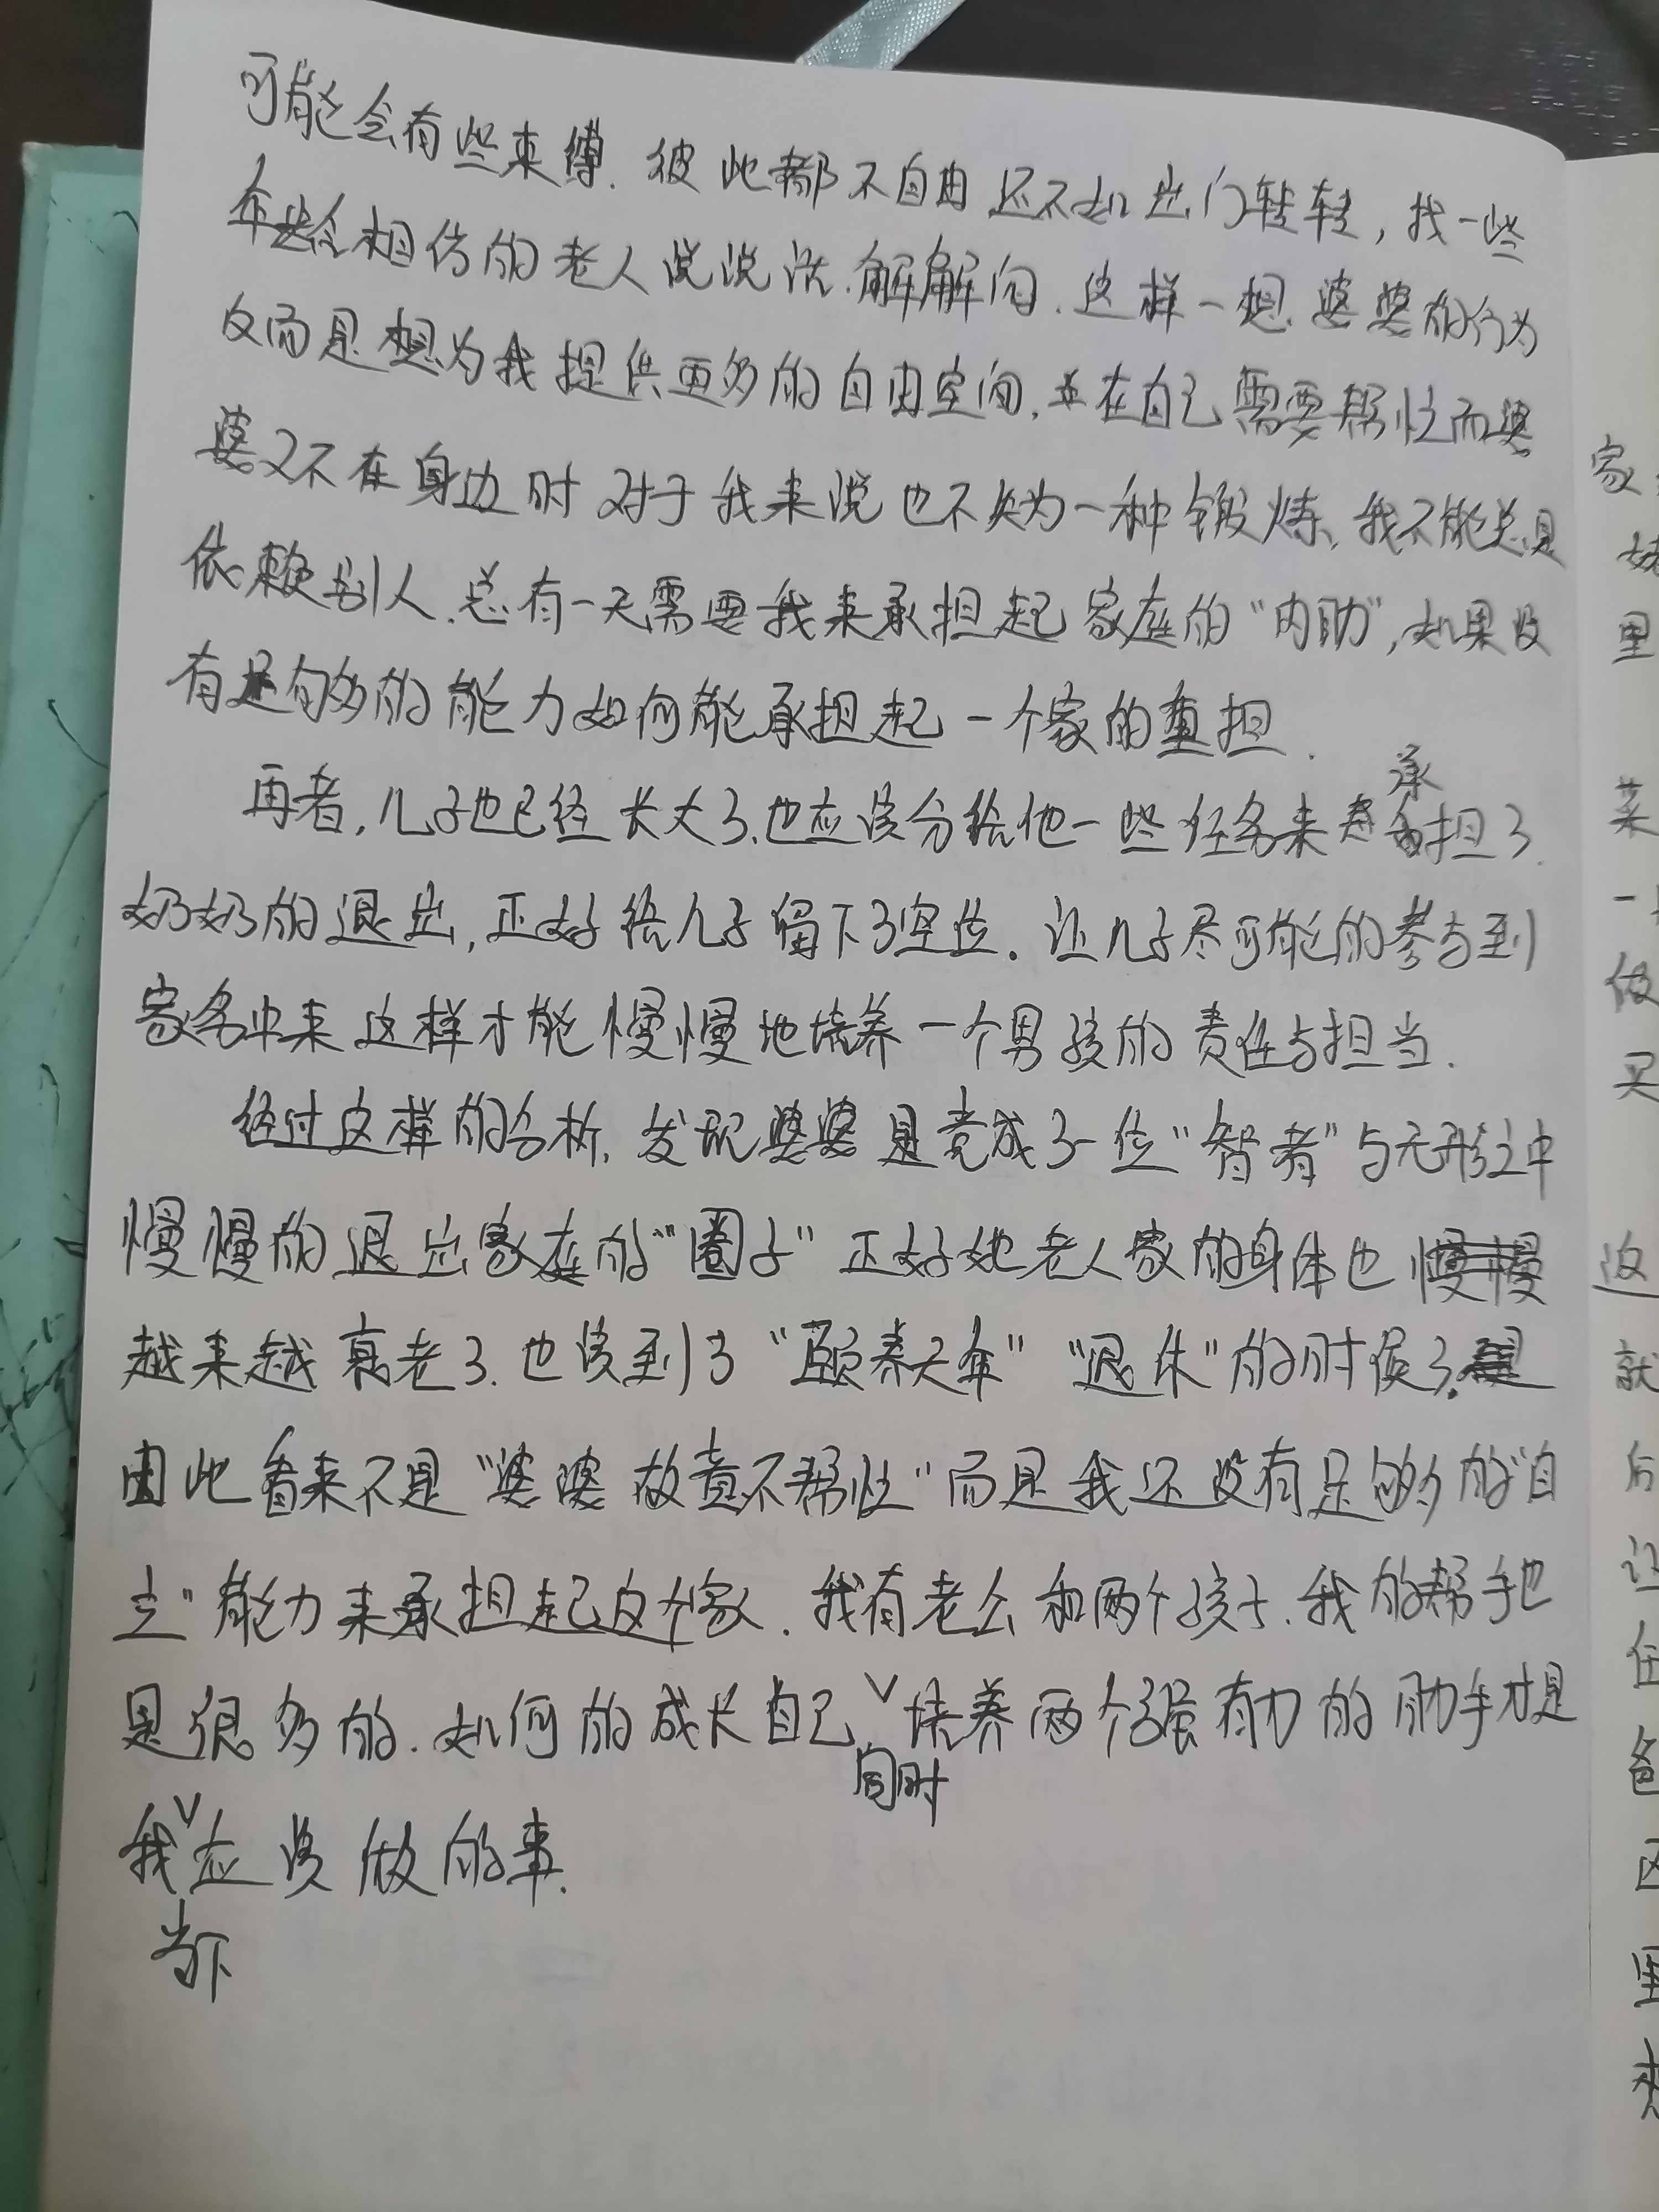 可能会有些束缚. 彼此都不自由 还不如出门转转, 找一些
年龄相仿的老人说说话.解解闷. 这样一想. 婆婆的行为
反而是想为我提供更多的自由空间. 并在自己需要帮忙而婆
婆又不在身边时 对于我来说也不失为一种锻炼, 我不能总是
依赖别人. 总有一天需要我来承担起家庭的“内助”, 如果没
有足够多的能力如何能承担起一个家的重担.
再者, 儿子也已经长大了.也应该分给他一些任务来承担了.
奶奶的退出, 正好给儿子留下了空位. 让儿子尽可能的参与到
家务中来 这样才能慢慢地培养一个男孩的责任与担当.
经过这样的分析, 发现婆婆是竟成了一位“智者”与无形之中
慢慢的退出家庭的“圈子” 正好她老人家的身体也
越来越衰老了. 也该到了“颐养天年”“退休”的时候了.
由此看来不是“婆婆故意不帮忙”而是我还没有足够多的“自
主”能力来承担起这个家. 我有老公和两个孩子. 我的帮手也
是很多的. 如何的成长自己 同时 培养两个强有力的助手才是
我 当下 应该做的事.
家
里
菜
一
做
买
这
就
后
让
任
爸
里